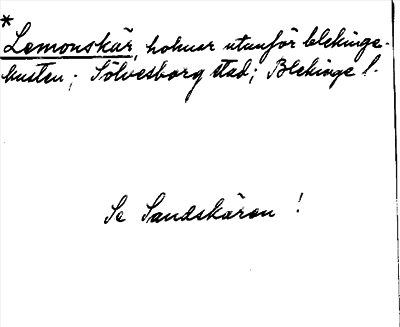 *
Lemonskär, holmar utanför blekinge-
kusten; Sölvesborg stad; Blekinge l.
Se Sandskären!